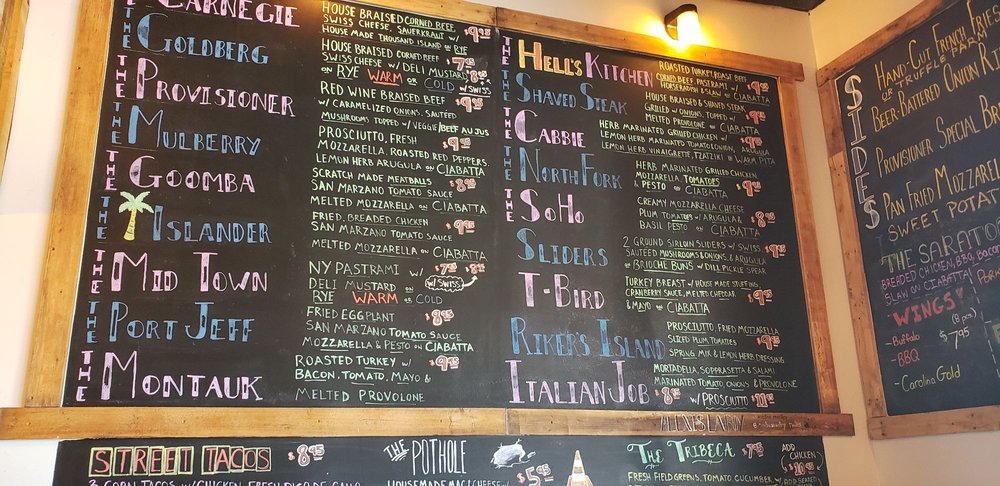 THE CARNEGIE
HOUSE BRAISED CORNED BEEF,
SWISS CHEESE, SAUERKRAUT W/
HOUSE MADE THOUSAND ISLAND ON RYE
$9.95
THE GOLDBERG
HOUSE BRAISED CORNED BEEF
SWISS CHEESE W/ DELI MUSTARD
ON RYE WARM OR COLD
$7.95
$8.95
W/SWISS
THE PROVISIONER
RED WINE BRAISED BEEF
W/ CARAMELIZED ONIONS, SAUTÉED
MUSHROOMS TOPPED W/ VEGGIE/BEEF AU JUS
$9.95
THE MULBERRY
PROSCIUTTO, FRESH
MOZZARELLA, ROASTED RED PEPPERS,
LEMON HERB ARUGULA ON CIABATTA
$9.95
THE GOOMBA
SCRATCH MADE MEATBALLS
SAN MARZANO TOMATO SAUCE
MELTED MOZZARELLA ON CIABATTA
$8.95
THE ISLANDER
FRIED, BREADED CHICKEN
SAN MARZANO TOMATO SAUCE
MELTED MOZZARELLA ON CIABATTA
$9.95
THE MID TOWN
NY PASTRAMI W/
DELI MUSTARD ON
RYE WARM OR COLD
$7.95
$8.95
W/SWISS
THE PORT JEFF
FRIED EGGPLANT
SAN MARZANO TOMATO SAUCE
MOZZARELLA & PESTO ON CIABATTA
$8.95
THE MONTAUK
ROASTED TURKEY W/
BACON, TOMATO, MAYO &
MELTED PROVOLONE
$9.95
THE HELL'S KITCHEN
ROASTED TURKEY, ROAST BEEF
CORNED BEEF, PASTRAMI W/
HORSERADISH & SLAW ON CIABATTA
$9.95
THE SHAVED STEAK
HOUSE BRAISED & SHAVED STEAK
GRILLED W/ ONIONS, TOPPED W/
MELTED PROVOLONE ON CIABATTA
$9.95
THE CABBIE
HERB MARINATED GRILLED CHICKEN W/
LEMON HERB MARINATED TOMATO, ONION, ARUGULA
LEMON HERB VINAIGRETTE, TZATZIKI IN WARM PITA
$9.95
THE NORTH FORK
HERB MARINATED GRILLED CHICKEN
MOZZARELLA TOMATOES
& PESTO ON CIABATTA
$9.95
THE SOHO
CREAMY MOZZARELLA CHEESE
PLUM TOMATOES W/ ARUGULA &
BASIL PESTO ON CIABATTA
$8.95
SLIDERS
2 GROUND SIRLOIN SLIDERS W/ SWISS
SAUTEED MUSHROOMS & ONIONS, & ARUGULA
ON BRIOCHE BUNS W/ DILL PICKLE SPEAR
$9.95
T-BIRD
TURKEY BREAST W/ HOUSE MADE STUFFING,
CRANBERRY SAUCE, MELTED CHEDDAR
& MAYO ON CIABATTA
$9.95
RIKER'S ISLAND
PROSCIUTTO, FRIED MOZZARELLA
SLICED PLUM TOMATOES
SPRING MIX & LEMON HERB DRESSING
$9.95
ITALIAN JOB
MORTADELLA, SOPPRASETTA & SALAMI
MARINATED TOMATO, ONIONS & PROVOLONE
$8.95 W/ PROSCIUTTO $11.95
SIDES
HAND-CUT FRENCH FRIES
OR TRUFFLE PARM
BEER-BATTERED ONION
PROVISIONER SPECIAL
PAN FRIED MOZZAREL
SWEET POTAT
THE SARATO
BREADED CHICKEN, BBQ, BACO
SLAW ON CIABATTA
WINGS (8 PCS)
- BUFFALO
$7.95
- BBQ
- CAROLINA GOLD
STREET TACOS $8.95
3 CORN TACOS W/ CHICKEN, FRESH PICO DE GALLO
THE POTHOLE
HOUSEMADE MAC & CHEESE W/
$5.95
THE TRIBECA $7.95
ADD CHICKEN
$10.95
FRESH FIELD GREENS, TOMATO, CUCUMBER W/